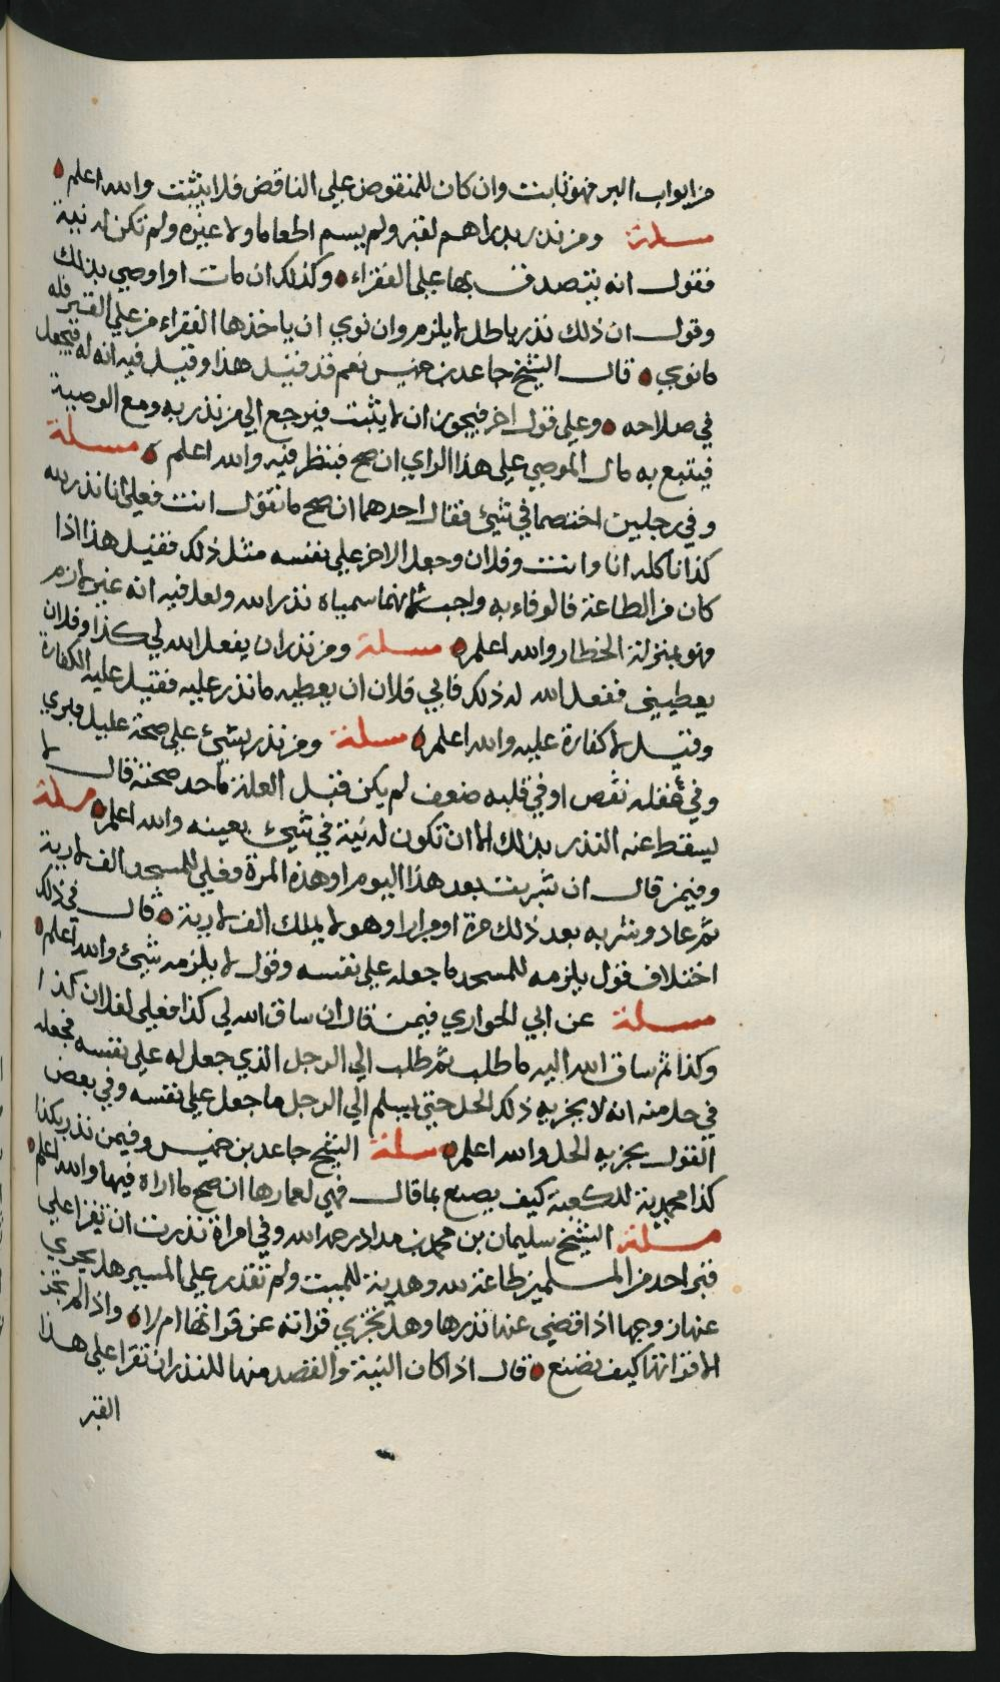 من ابواب البر فهو ثابت وان كان للمنقوض علي الناقض فلا يثبت والله اعلم
مسلة ومن نذر بدراهم لقبر ولم يسم اطعاما ولا غيره ولم تكن له نية
فقول انه يتصدق بها علي الفقراء وكذلك ان مات او اوصي بذلك
وقول ان ذلك نذر باطل لا يلزم وان نوي ان ياخذها الفقراء من علي القبر فله
ما نوي قال الشيخ جاعد بن خميس نعم قد قيل هذا وقيل فيه انه له فيجعل
في صلاحه وعلي قول اخر فيجوز ان لا يثبت فيرجع الي من نذر به ومع الوصية
فيتبع به مال الموصي علي هذا الراي ان صح فينظر فيه والله اعلم مسلة
وفي رجلين اختصما في شيئ فقال احدهما ان صح ما تقول انت فعلي انا نذر لله
كذا ناكله انا وانت وفلان وجعل الاخر علي نفسه مثل ذلك فقيل هذا اذا
كان من الطاعة فالوفاء به واجب لانهما سمياه نذر الله ولعل فيه انه غير لازم
وهو بمنزلة الخطار والله اعلم مسلة ومن نذر ان يفعل الله لي كذا وفلان
يعطيني ففعل الله له ذلك فابي فلان ان يعطيه ما نذر عليه فقيل عليه الكفارة
وقيل لا كفارة عليه والله اعلم مسلة ومن نذر بشيئ علي صحة عليل فبري
وفي عقله نقص او في قلبه ضعف لم يكن قبل العلة ما حد صحته قال لا
يسقط عنه النذر بذلك الا ان تكون له نية في شيئ بعينه والله اعلم مسلة
وفيمن قال ان شربت بعد هذا اليوم او هذه المرة فعلي للمسجد الف لارية
ثم عاد وشربه بعد ذلك مرة او مرارا وهو لا يملك الف لارية قال في ذلك
اختلاف قول يلزمه للمسجد ما جعله علي نفسه وقول لا يلزمه شيئ والله اعلم
مسلة عن ابي الحواري فيمن قال ان ساق الله لي كذا فعلي لفلان كذا
وكذا ثم ساق الله اليه ما طلب ثم طلب الي الرجل الذي جعل له علي نفسه فجعله
في حل منه انه لا يجزيه ذلك الحل حتي يسلم الي الرجل ما جعل علي نفسه وفي بعض
القول يجزيه الحل والله اعلم مسلة الشيخ جاعد بن خميس وفيمن نذر بكذا
كذا محمدية للكعبة كيف يصنع بها قال فهي لعمارها ان صح ما اراه فيها والله اعلم
مسلة الشيخ سليمان بن محمد بن مداد رحمه الله وفي امراة نذرت ان تقرا علي
قبر احد من المسلمين طاعة لله وهدية للميت ولم تقدر علي المسير هل يجزي
عنها زوجها اذا قضي عنها نذرها وهل تجزي قراته عن قراتها ام لا واذا لم تجز
الا قراتها كيف تصنع قال اذا كان النية والقصد منها للنذر ان تقرا علي هذا
القبر